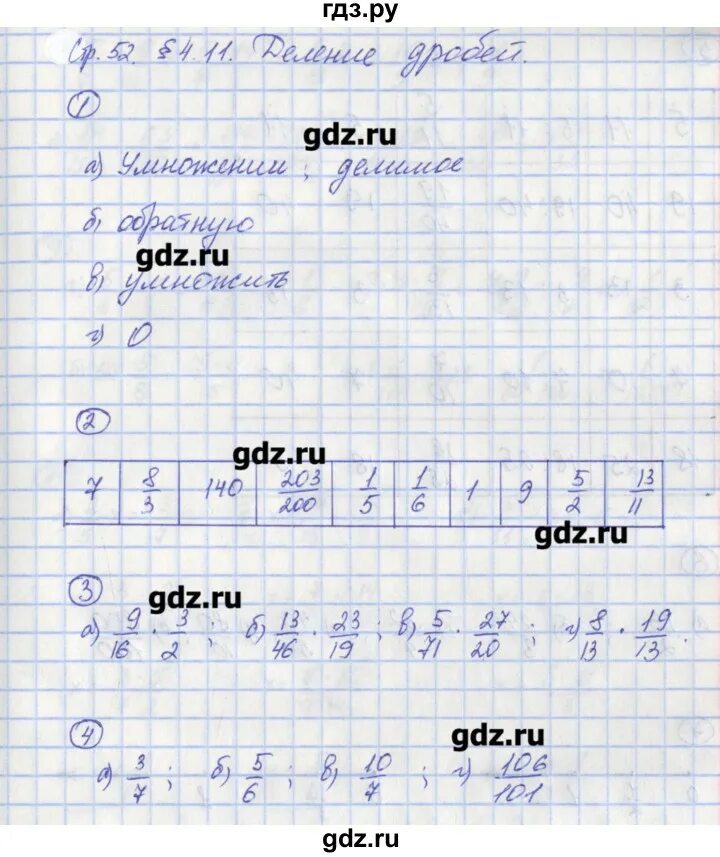 гдз.ру
Стр. 52. § 4.11. Деление дробей.
1
gdz.ru
а) Умножении; делимое
б) обратную
gdz.ru
в) умножить
г) 0
2
gdz.ru
7 | 8/3 | 140 | 203/200 | 1/5 | 1/6 | 1 | 9 | 5/2 | 13/11
gdz.ru
3
gdz.ru
а) 9/16 · 3/2 ; б) 13/46 · 23/19 ; в) 5/71 · 27/20 ; г) 8/13 · 19/13 .
4
gdz.ru
а) 3/7 ; б) 5/6 ; в) 10/7 ; г) 106/101
gdz.ru